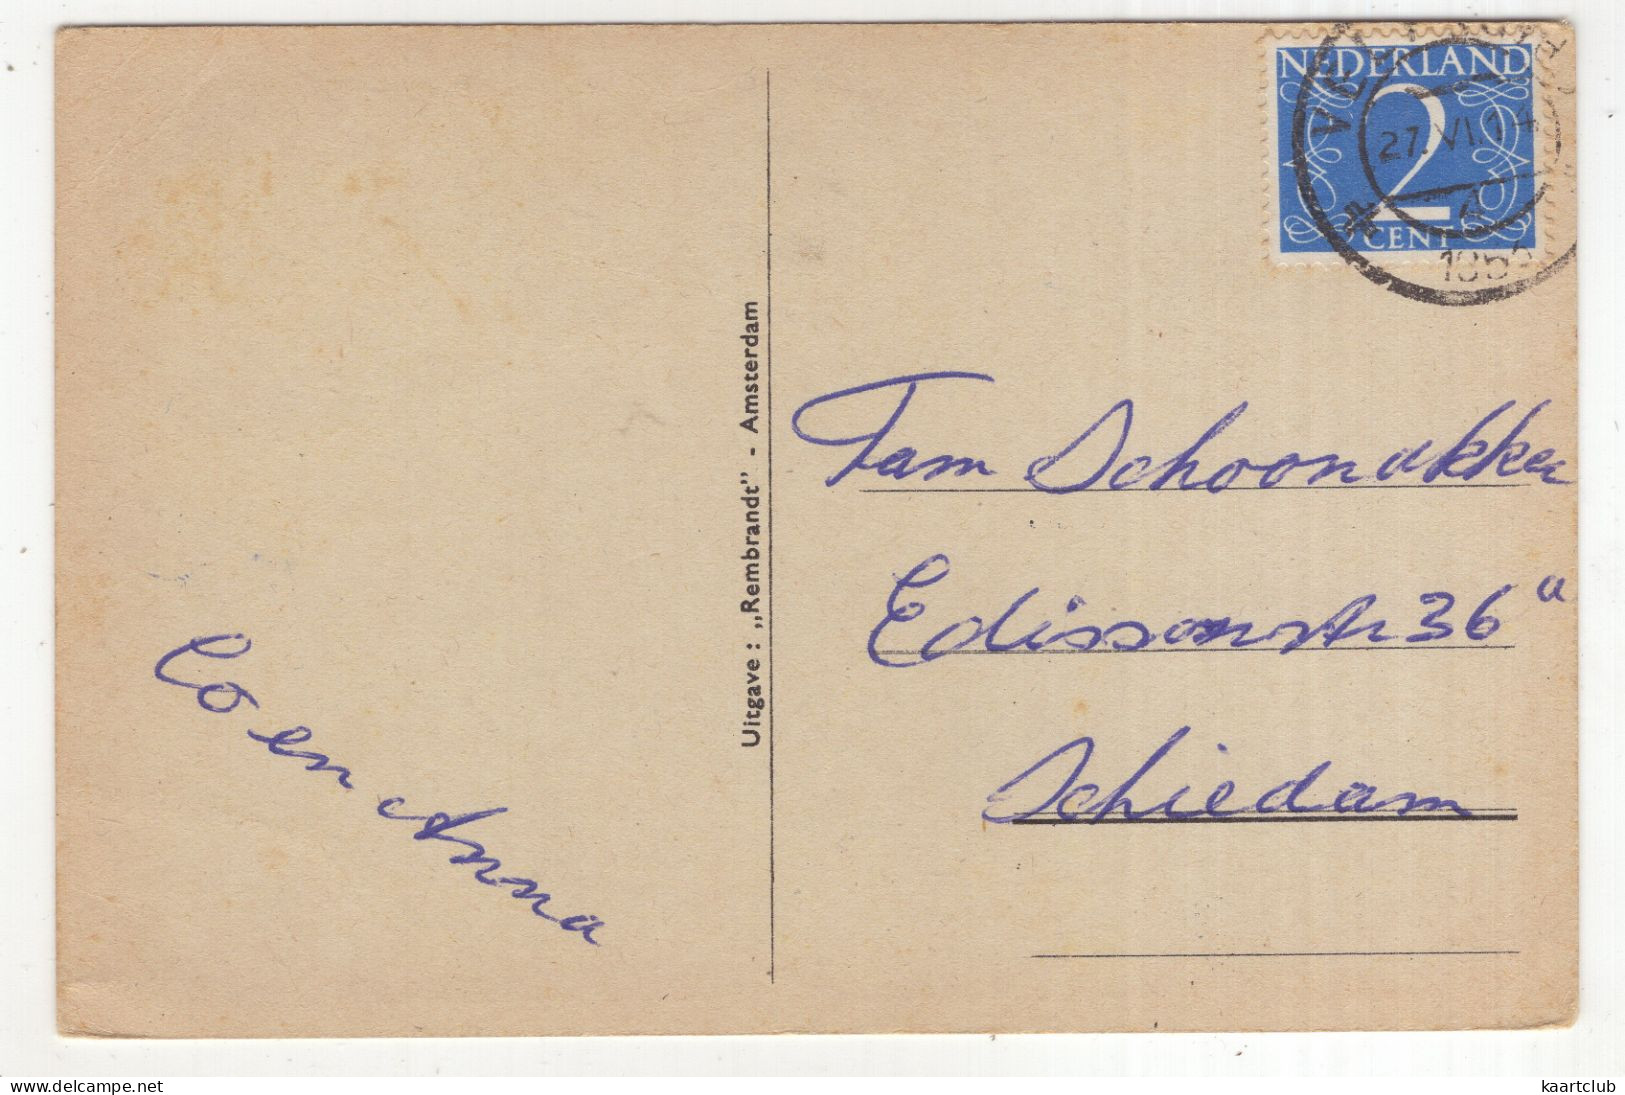 NEDERLAND
2
CENT
27.VI.14
Uitgave: „Rembrandt" - Amsterdam
Fam Schoonakker
Edissonstr 36 a
Schiedam
Co en Anna
kaartclub
www.delcampe.net